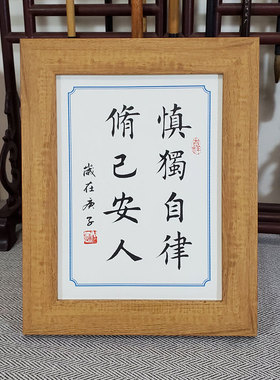 慎獨自律
脩己安人
歲在庚子